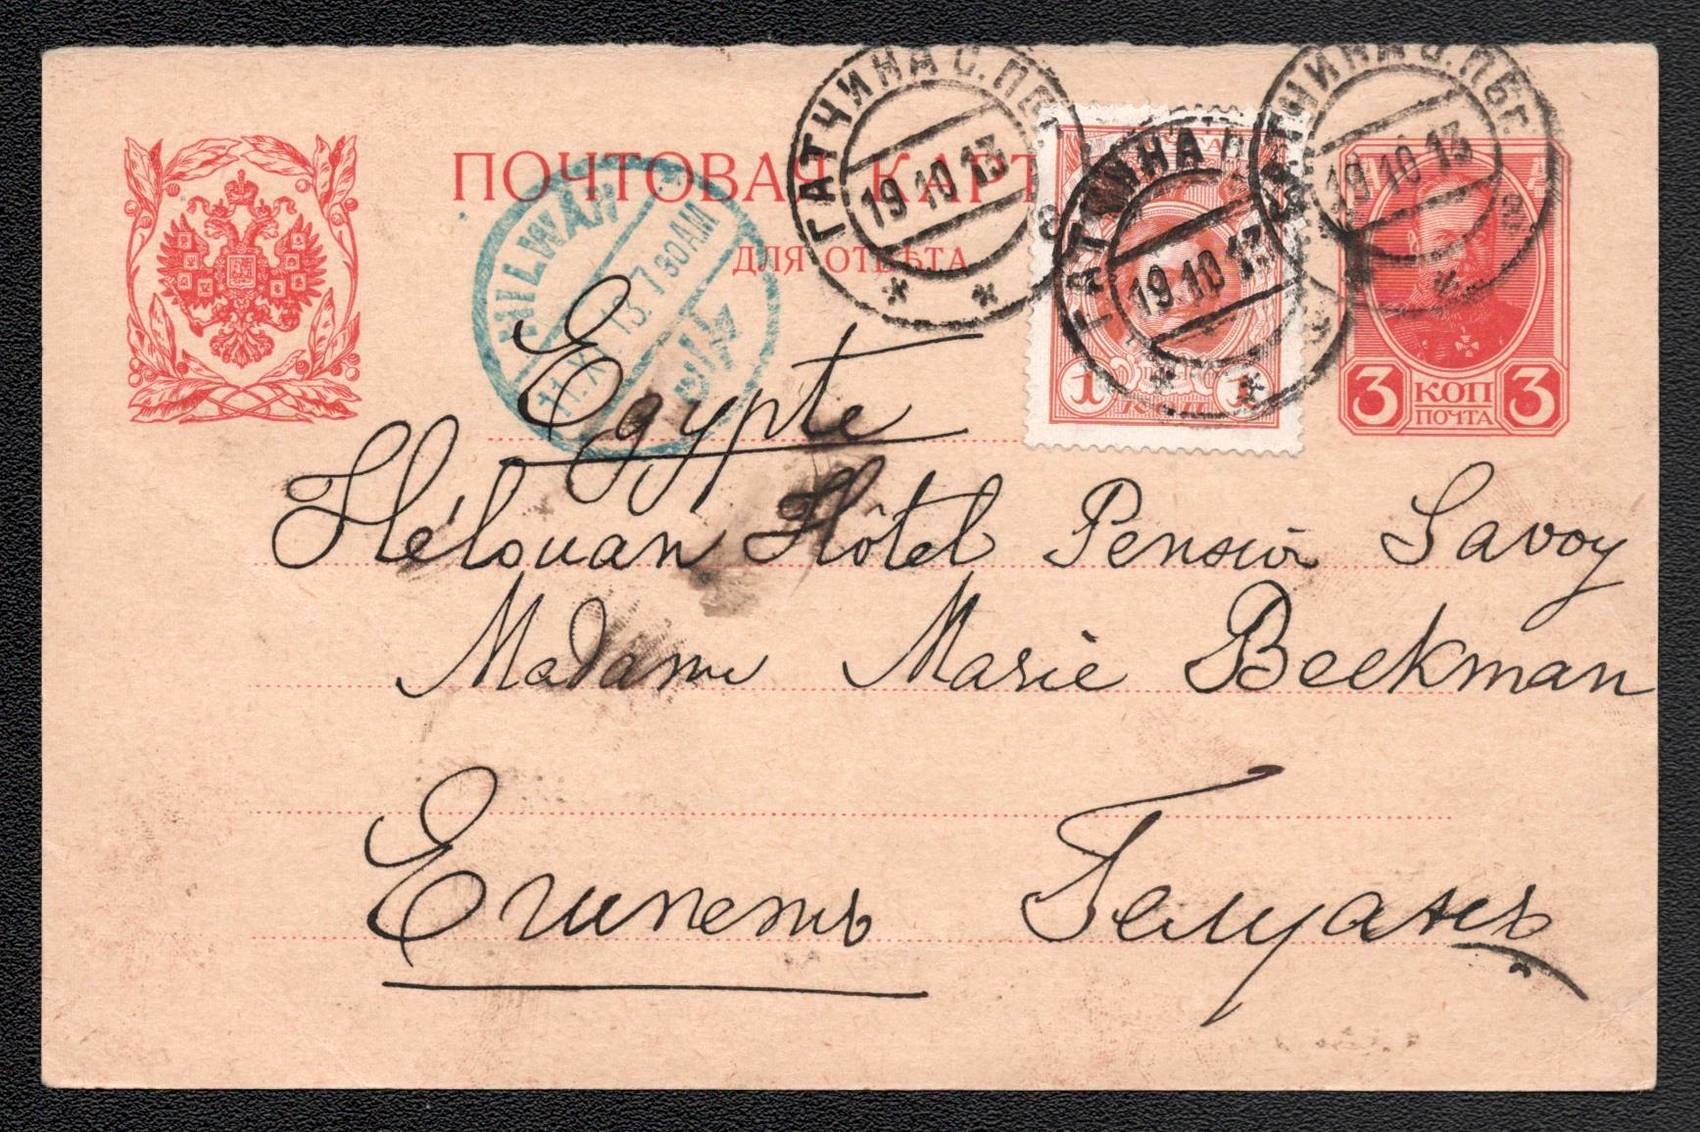 ПОЧТОВАЯ КАРТ
ДЛЯ ОТВѢТА
HILWAN
XI. 13. 7 30 AM
حلوان
ГАТЧИНА С. ПБ
19 10 13
ГАТЧИНА
19 10 13
ТЧИНА С. ПБг.
19 10 13
1 1
3 КОП 3
ПОЧТА
Egypte
Hélouan Hôtel Pension Savoy
Madame Marie Beekman
Египетъ Гелуанъ